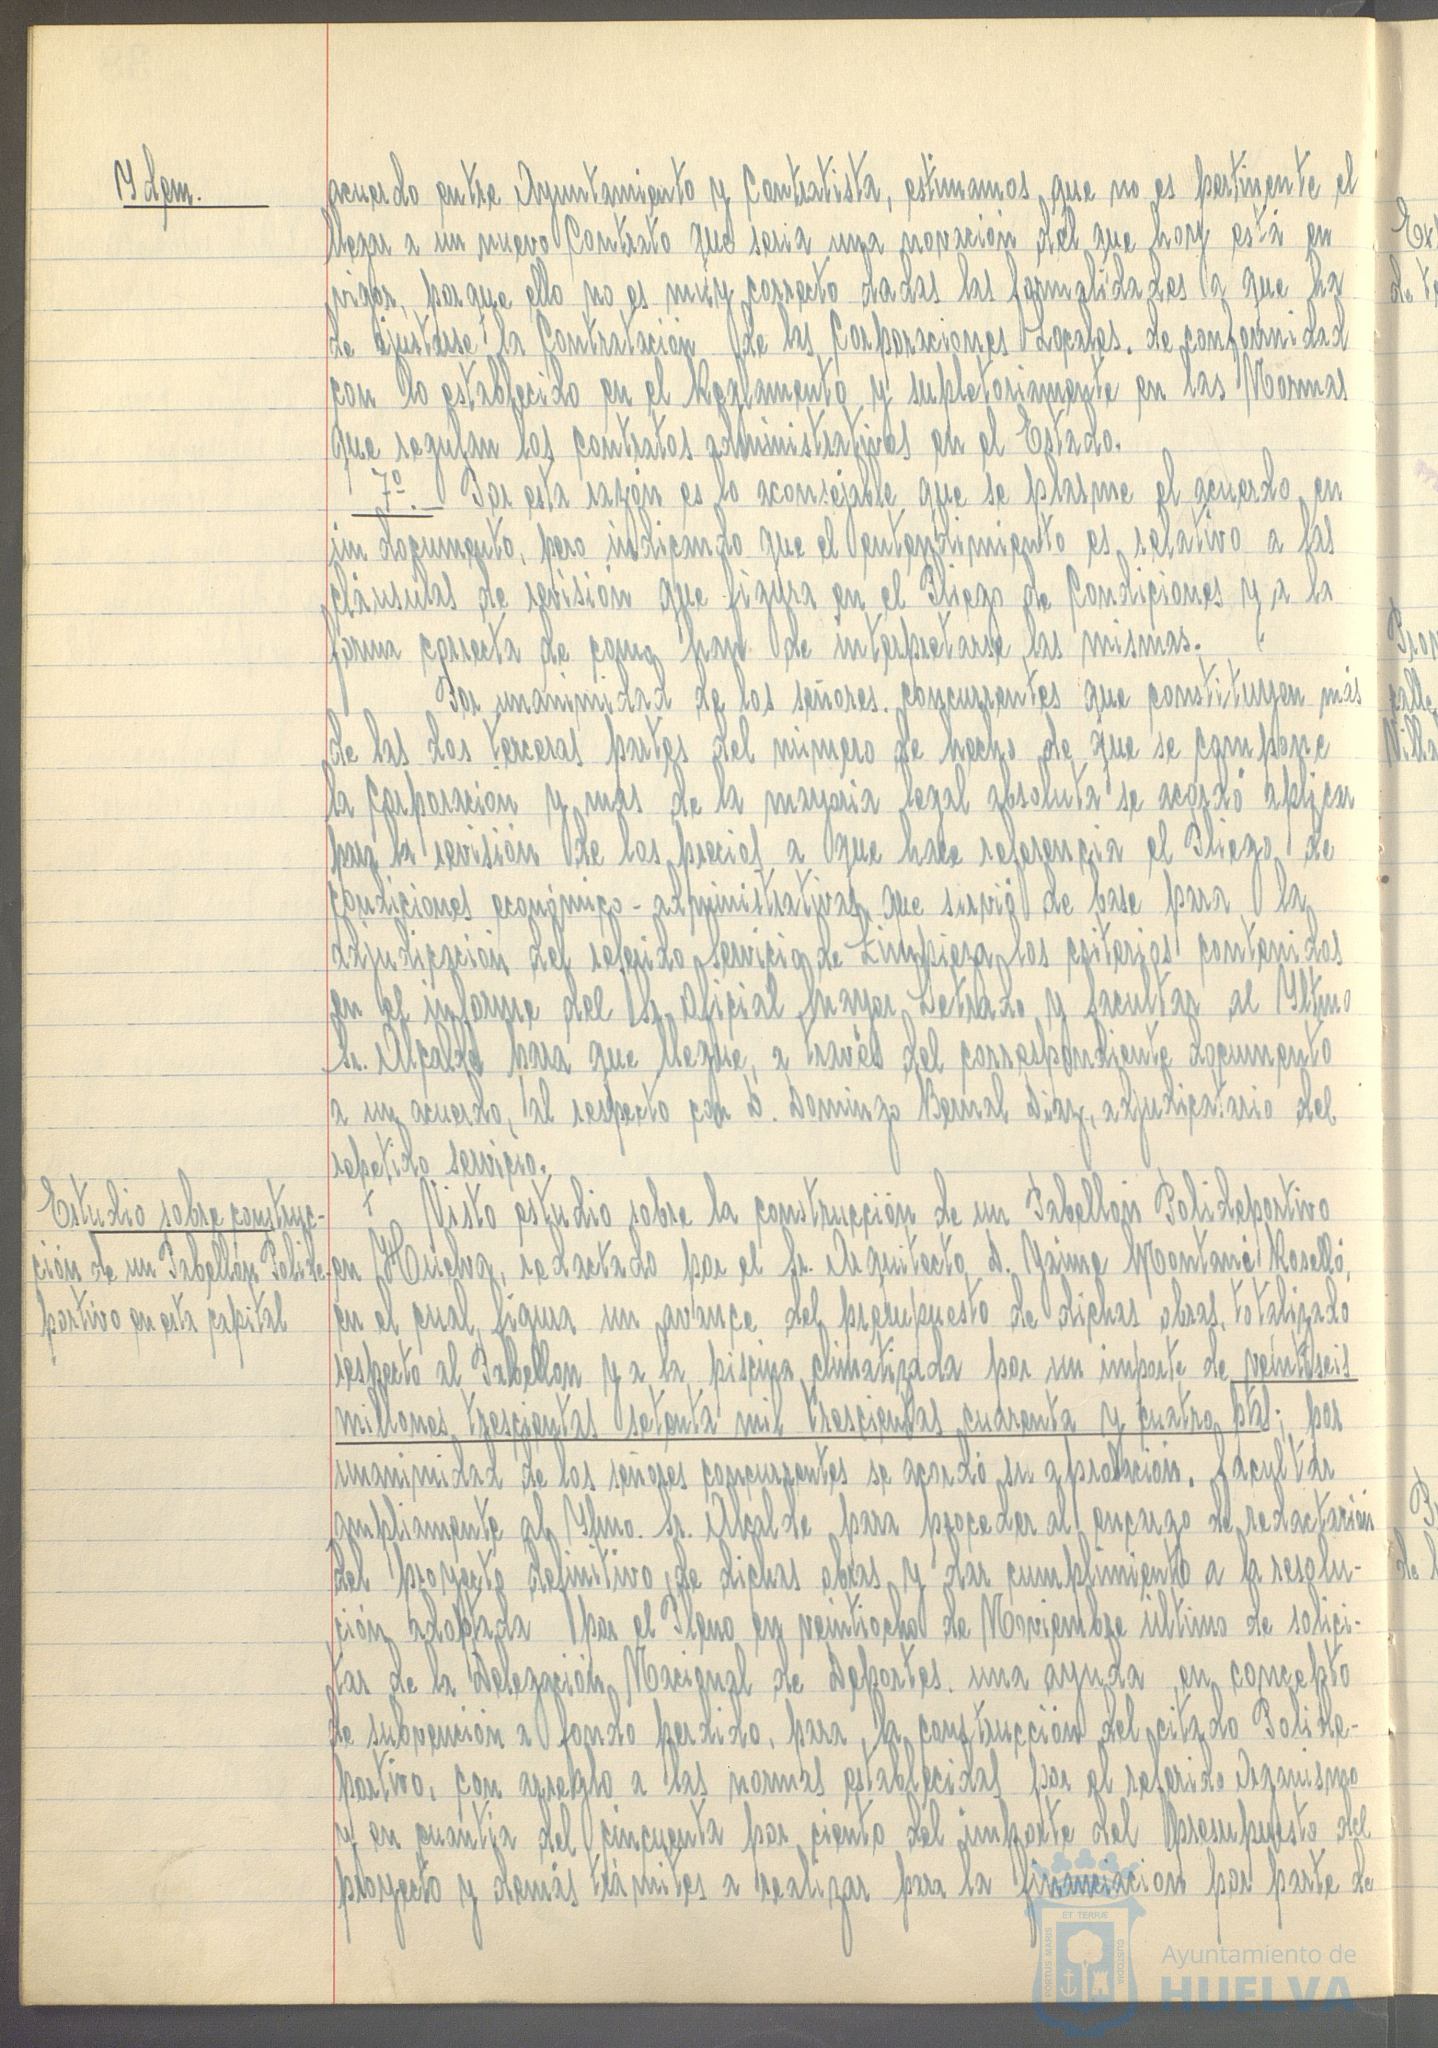 Ydem.
acuerdo entre Ayuntamiento y Contratista, estimamos que no es pertinente el
llegar a un nuevo Contrato que seria una novación del que hoy está en
vigor, porque ello no es muy correcto dadas las formalidades a que ha
de ajustarse la Contratación de las Corporaciones Locales. de conformidad
con lo establecido en el Reglamento y supletoriamente en las Normas
que regulan los contratos administrativos en el Estado.
7º.- Por esta razón es lo aconsejable que se plasme el acuerdo en
un documento, pero indicando que el entendimiento es relativo a las
cláusulas de revisión que figura en el Pliego de Condiciones y a la
forma correcta de como han de interpretarse las mismas.
Por unanimidad de los señores. concurrentes que constituyen más
de las dos terceras partes del número de hecho de que se compone
la Corporación y más de la mayoria legal absoluta se acordó aplicar
para la revisión de los precios a que hace referencia el Pliego de
condiciones económico-administrativas que sirvió de base para la
adjudicación del referido Servicio de Limpieza los criterios contenidos
en el informe del Sr. Oficial Mayor Letrado y facultar al Yltmo
Sr. Alcalde para que llegue, a través del correspondiente documento
a un acuerdo, al respecto con D. Domingo Bernal Diaz, adjudicatario del
repetido servicio.
Estudio sobre construc-
ción de un Pabellón Polide-
portivo en esta capital
Visto estudio sobre la construcción de un Pabellón Polideportivo
en Huelva, redactado por el Sr. Arquitecto D. Jaime Montané Roselló,
en el cual figura un avance del presupuesto de dichas obras, totalizado
respecto al Pabellon y a la piscina climatizada por un importe de veintiseis
millones trescientas setenta mil trescientas cuarenta y cuatro ptas; por
unanimidad de los señores concurrentes se acordó su aprobación. facultar
ampliamente al Yltmo. Sr. Alcalde para proceder al encargo de redactación
del proyecto definitivo de dichas obras y dar cumplimiento a la resolu-
ción adoptada por el Pleno en veintiocho de Noviembre último de solici-
tar de la Delegación Nacional de Deportes. una ayuda en concepto
de subvención a fondo perdido, para la construcción del citado Polide-
portivo, con arreglo a las normas establecidas por el referido Organismo
y en cuantia del cincuenta por ciento del importe del presupuesto del
proyecto y demás trámites a realizar para la financiacion por parte de
PORTUS MARIS
ET TERRÆ
CUSTODIA
Ayuntamiento de
HUELVA